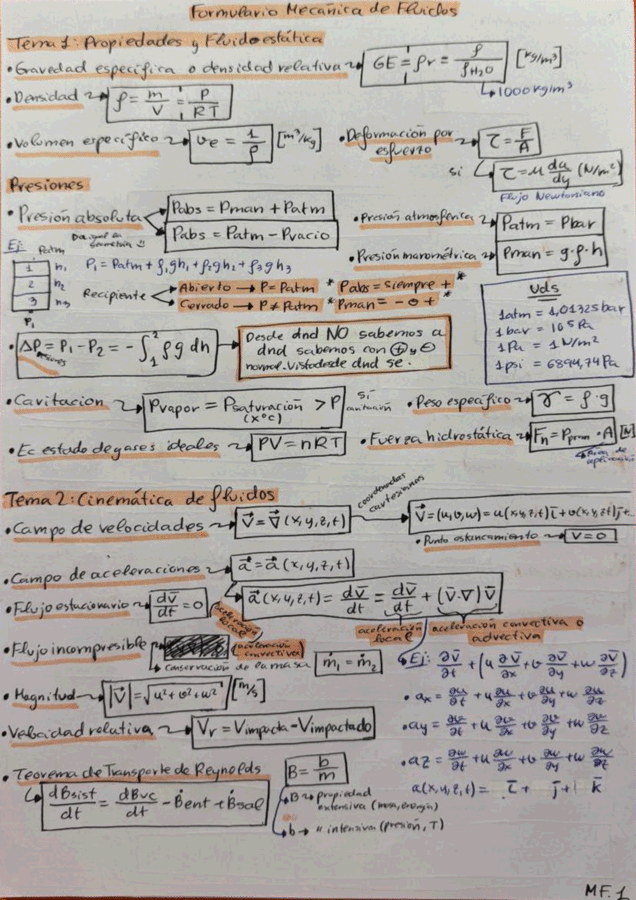 Formulario Mecánica de Fluidos
Tema 1: Propiedades y Fluidoestática
• Gravedad específica o densidad relativa → GE = ρr = ρ / ρH2O [kg/m³]
→ 1000 kg/m³
• Densidad → ρ = m/V = P/RT
• Volumen específico → ve = 1/ρ [m³/kg]
• Deformación por esfuerzo → τ = F/A
si → τ = μ du/dy (N/m²)
Flujo Newtoniano
Presiones
• Presión absoluta Pabs = Pman + Patm
Pabs = Patm - Pvacio
• Presión atmosférica → Patm = Pbar
• Presión manométrica → Pman = g·ρ·h
Ej: Patm
1 h1
2 h2
3 h3
P1
P1 = Patm + ρ1gh1 + ρ2gh2 + ρ3gh3
Recipiente Abierto → P = Patm * Pabs = siempre + *
Cerrado → P ≠ Patm * Pman = - o + *
Uds
1atm = 1,01325bar
1 bar = 10⁵ Pa
1 Pa = 1 N/m²
1 psi = 6894,74 Pa
• ΔP = P1 - P2 = -∫₁² ρg dh
Desde dnd NO sabemos a
dnd sabemos con ⊕ y ⊖
normal. Visto desde dnd se.
• Cavitacion → Pvapor = Psaturación > P
(x°C)
si cavitación
• Peso específico → γ = ρ·g
• Ec estado de gases ideales → PV = nRT
• Fuerza hidrostática → Fn = Pman · A [N]
Tema 2: Cinemática de fluidos
• Campo de velocidades → V = V (x,y,z,t)
coordenadas cartesianas
V = (u,v,w) = u(x,y,z,t)i + v(x,y,z,t)j + ..
• Punto estancamiento → V = 0
• Campo de aceleraciones → a = a (x,y,z,t)
• Flujo estacionario → dv/dt = 0
a (x,y,z,t) = dv/dt = dv/dt + (v·∇)v
aceleración local
aceleración local
aceleración convectiva o advectiva
• Flujo incompresible
aceleración convectiva
conservación de la masa ṁ1 = ṁ2
• Ej: ∂v/∂t + (u ∂v/∂x + v ∂v/∂y + w ∂v/∂z)
• Magnitud → |V| = √u² + v² + w² [m/s]
• ax = ∂u/∂t + u ∂u/∂x + v ∂u/∂y + w ∂u/∂z
• Velocidad relativa → Vr = Vimpacta - Vimpactado
• ay = ∂v/∂t + u ∂v/∂x + v ∂v/∂y + w ∂v/∂z
• az = ∂w/∂t + u ∂w/∂x + v ∂w/∂y + w ∂w/∂z
a(x,y,z,t) = i + j + k
• Teorema de Transporte de Reynolds
dBsist/dt = dBvc/dt - Ḃent + Ḃsal
B = b/m
B → propiedad
extensiva (masa, energía)
b → " intensiva (presión, T)
MF.1